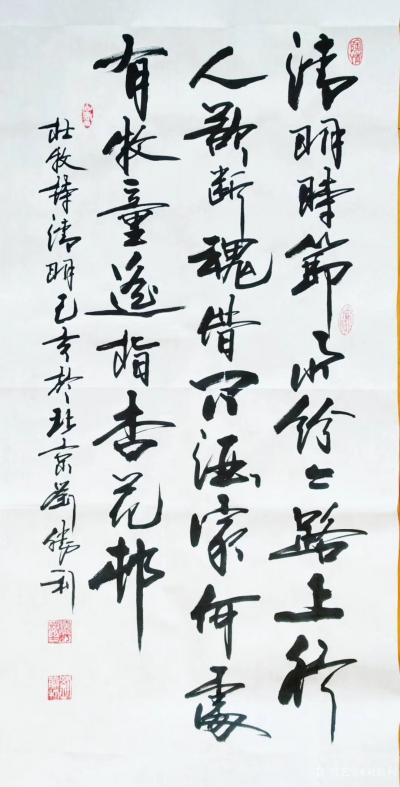 清明時節雨紛々路上行
人欲斷魂借問酒家何處
有牧童遙指杏花邨
杜牧詩清明己亥於北京劉勝利